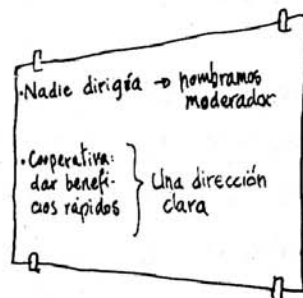 ·Nadie dirigía → nombramos
moderador
·Cooperativa:
dar benefi-
cios rápidos
Una dirección
clara